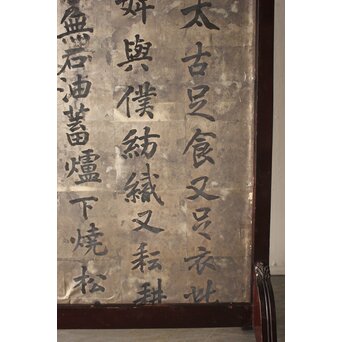 太古足食又足衣
婢與僕紡織又耘耕
無石油蓄爐下燒松